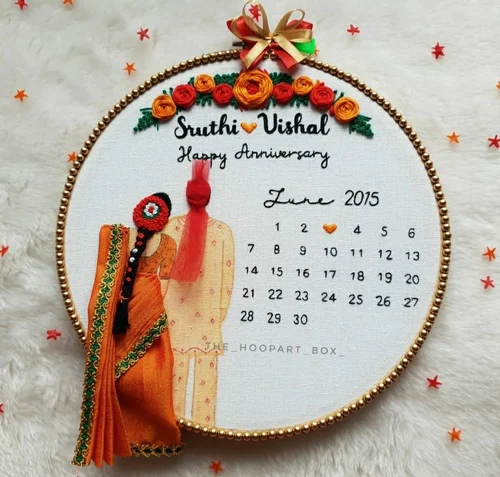 Sruthi 🧡 Vishal
Happy Anniversary
June 2015
1 2 🧡 4 5 6
7 8 9 10 11 12 13
14 15 16 17 18 19 20
21 22 23 24 25 26 27
28 29 30
THE_HOOPART_BOX_